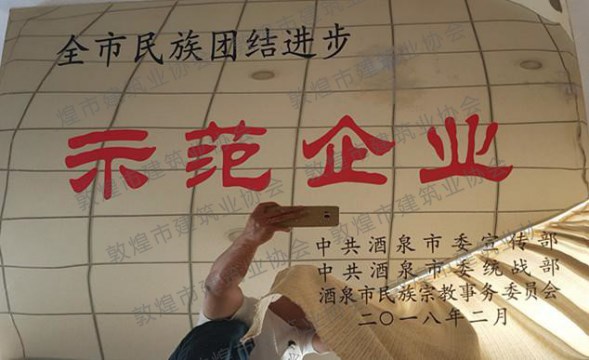 全市民族团结进步
示范企业
中共酒泉市委宣传部
中共酒泉市委统战部
酒泉市民族宗教事务委员会
二〇一八年二月
敦煌市建筑业协会
敦煌市建筑业协会
敦煌市建筑业协会
敦煌市建筑业协会
敦煌市建筑业协会
敦煌市建筑业协会